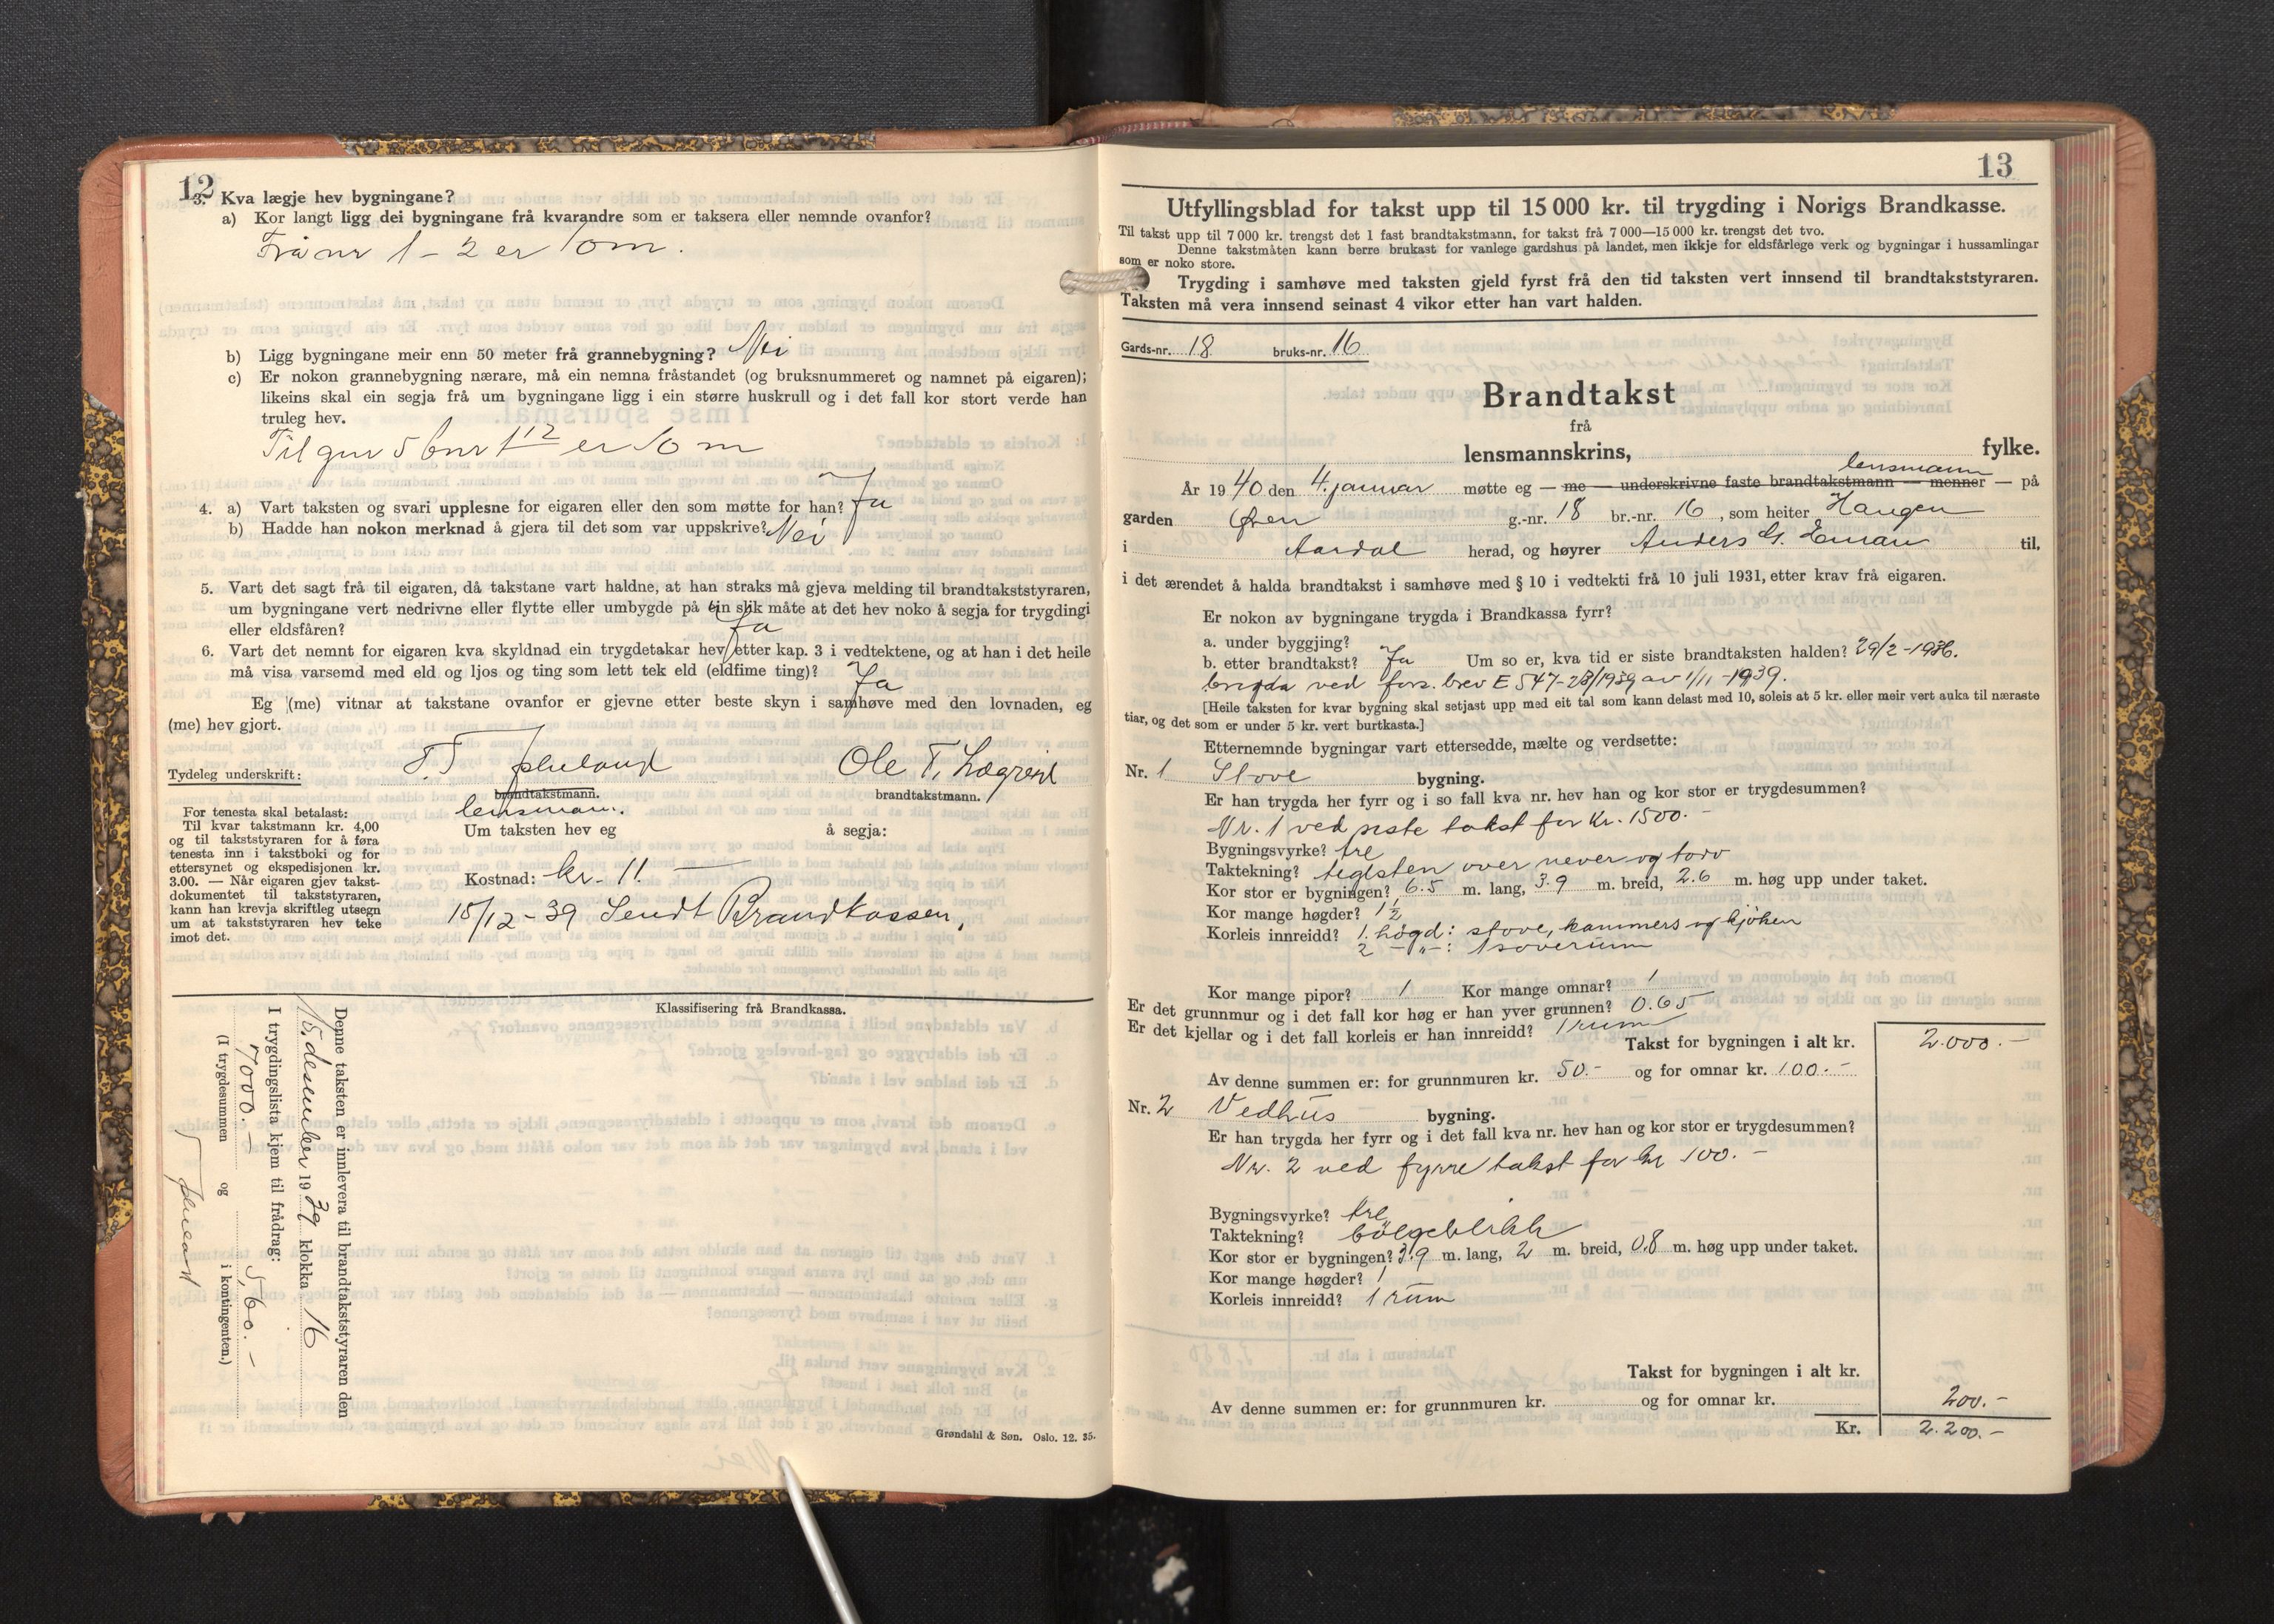 12
3. Kva lægje hev bygningane?
a) Kor langt ligg dei bygningane frå kvarandre som er taksera eller nemnde ovanfor?
Frå nr 1 - 2 er 10 m.
b) Ligg bygningane meir enn 50 meter frå grannebygning? Nei
c) Er nokon grannebygning nærare, må ein nemna fråstandet (og bruksnummeret og namnet på eigaren);
likeins skal ein segja frå um bygningane ligg i ein større huskrull og i det fall kor stort verde han
truleg hev.
Til gnr 5 bnr 1 12 er 10 m
4. a) Vart taksten og svari upplesne for eigaren eller den som møtte for han? Ja
b) Hadde han nokon merknad å gjera til det som var uppskrive? Nei
5. Vart det sagt frå til eigaren, då takstane vart haldne, at han straks må gjeva melding til brandtakststyraren,
um bygningane vert nedrivne eller flytte eller umbygde på ein slik måte at det hev noko å segja for trygdingi
eller eldsfåren? Ja
6. Vart det nemnt for eigaren kva skyldnad ein trygdetakar hev etter kap. 3 i vedtektene, og at han i det heile
må visa varsemd med eld og ljos og ting som lett tek eld (eldfime ting)? Ja
Eg (me) vitnar at takstane ovanfor er gjevne etter beste skyn i samhøve med den lovnaden, eg
(me) hev gjort.
Tydeleg underskrift: Ole T. Lægreid
brandtakstmann. brandtakstmann.
lensmann.
For tenesta skal betalast:
Til kvar takstmann kr. 4,00
og til takststyraren for å føra
tenesta inn i takstboki og for
ettersynet og ekspedisjonen kr.
3.00. — Når eigaren gjev takst-
dokumentet til takststyraren,
kann han krevja skriftleg utsegn
um at takststyraren hev teke
imot det.
Um taksten hev eg å segja:
Kostnad: kr. 11. —
15/12-39 Sendt Brandkassen.
Klassifisering frå Brandkassa.
Denne taksten er innlevera til brandtakststyraren den
15. desember 1939 klokka 16
I trygdingslista kjem til frådrag:
7000.- og 5,60.-
(I trygdesummen og i kontingenten.)
Grøndahl & Søn. Oslo. 12. 35.
13
Utfyllingsblad for takst upp til 15 000 kr. til trygding i Norigs Brandkasse.
Til takst upp til 7 000 kr. trengst det 1 fast brandtakstmann, for takst frå 7 000—15 000 kr. trengst det tvo.
Denne takstmåten kann berre brukast for vanlege gardshus på landet, men ikkje for eldsfårlege verk og bygningar i hussamlingar
som er noko store.
Trygding i samhøve med taksten gjeld fyrst frå den tid taksten vert innsend til brandtakststyraren.
Taksten må vera innsend seinast 4 vikor etter han vart halden.
Gards-nr. 18 bruks-nr. 16
Brandtakst
frå
lensmannskrins, fylke.
lensmann
År 1940 den 4. januar møtte eg — me — underskrivne faste brandtakstmann — menner — på
garden Øren g.-nr. 18 br.-nr. 16, som heiter Haugen
i Aardal herad, og høyrer Anders G. til,
i det ærendet å halda brandtakst i samhøve med § 10 i vedtekti frå 10 juli 1931, etter krav frå eigaren.
Er nokon av bygningane trygda i Brandkassa fyrr?
a. under byggjing?
b. etter brandtakst? Ja Um so er, kva tid er siste brandtaksten halden? 29/2-1936.
brigda ved fors. brev E 547-28/1939 av 1/11-1939.
[Heile taksten for kvar bygning skal setjast upp med eit tal som kann delast med 10, soleis at 5 kr. eller meir vert auka til næraste
tiar, og det som er under 5 kr. vert burtkasta.]
Etternemnde bygningar vart ettersedde, mælte og verdsette:
Nr. 1 Stove bygning.
Er han trygda her fyrr og i so fall kva nr. hev han og kor stor er trygdesummen?
Nr. 1 ved siste takst for kr. 1500.-
Bygningsvyrke? tre
Taktekning? teglsten over never og torv
Kor stor er bygningen? 6.5 m. lang, 3.9 m. breid, 2.6 m. høg upp under taket.
Kor mange høgder? 1 1/2
Korleis innreidd? 1. høgd: stove, kammers og kjøken
2 -"-: 1 soverum
Kor mange pipor? 1 Kor mange omnar? 1
Er det grunnmur og i det fall kor høg er han yver grunnen? 0.65
Er det kjellar og i det fall korleis er han innreidd? 1 rum
Takst for bygningen i alt kr. 2.000.-
Av denne summen er: for grunnmuren kr. 50.- og for omnar kr. 100.-
Nr. 2 Vedhus bygning.
Er han trygda her fyrr og i det fall kva nr. hev han og kor stor er trygdesummen?
Nr. 2 ved fyrre takst for kr 100.-
Bygningsvyrke? tre
Taktekning? bölgeblikk
Kor stor er bygningen? 3.9 m. lang, 2 m. breid, 0.8 m. høg upp under taket.
Kor mange høgder? 1
Korleis innreidd? 1 rum
Takst for bygningen i alt kr.
Av denne summen er: for grunnmuren kr. og for omnar kr. 200.-
Kr. 2.200.-